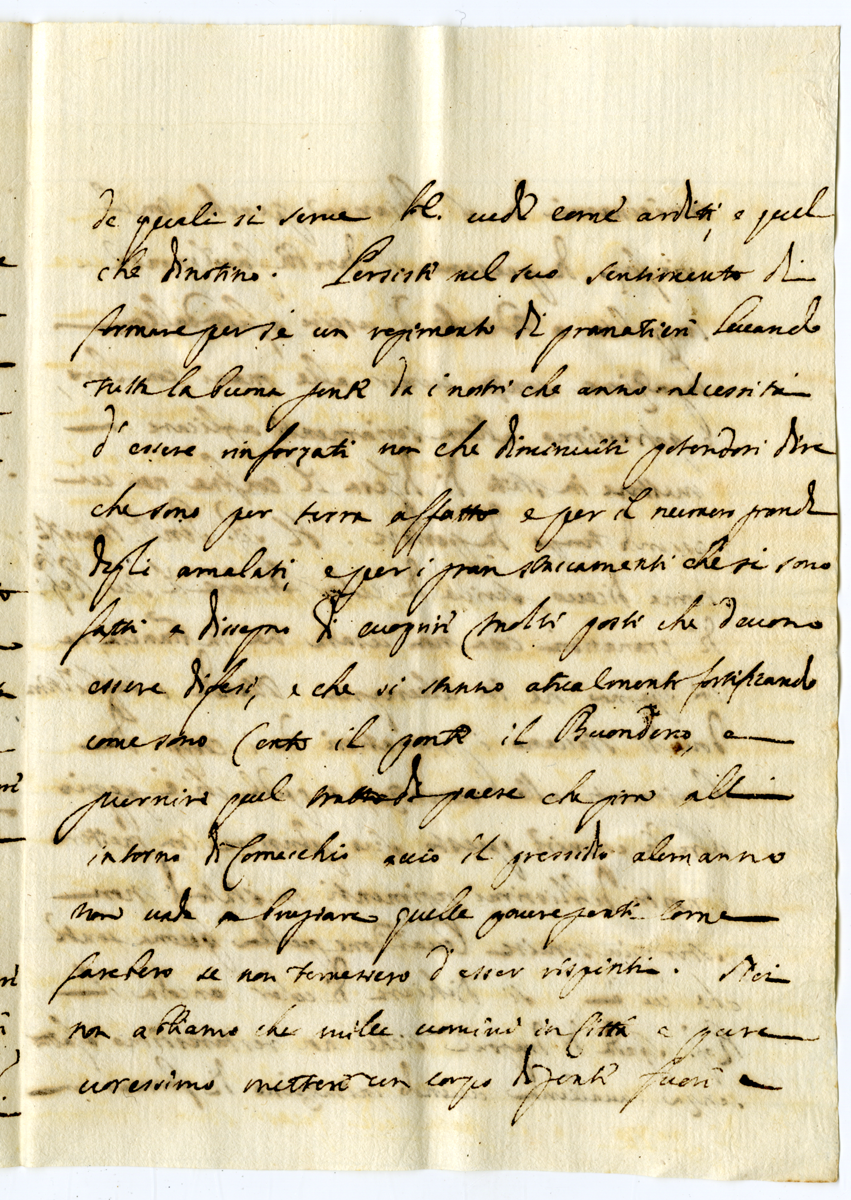 de quali si serve V.E. vede come arditi, e quel
che dinotino. Persiste nel suo sentimento di
formare per sé un regimento di granatieri levando
tutta la buona gente da i nostri che anno necessità
d'essere rinforzati non che diminuiti potendosi dire
che sono per terra affatto e per il numero grande
degli amalati, e per i gran staccamenti che si sono
fatti a dissegno di cuoprire molti posti che devono
essere difesi, e che si stanno atualmente fortificando
come sono Cento il ponte il Buondeno, e
guernire quel tratto di paese che gira all
intorno di Comacchio acciò il pressidio alemanno
non vada a brugiare quelle povere genti come
farebero se non temessero d'esser rispinti. Noi
non abbiamo che mille uomini in Città e pure
voressimo mettere un corpo di gente fuori e